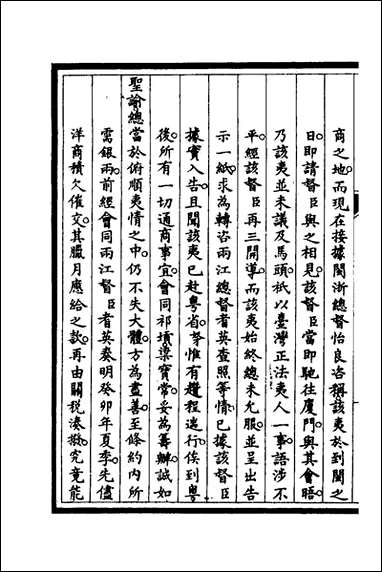 商之地而現在接據閩浙總督怡良咨稱該夷於到閩之
日即請督臣與之相見該督臣當即馳往廈門與其會晤
乃該夷並未議及馬頭衹以臺灣正法夷人一事語涉不
平經該督臣再三開導而該夷始終總未允服並呈出告
示一紙求為轉咨兩江總督耆英查照等情已據該督臣
據實入告且聞該夷已赴粵省奴才惟有趲程遄行俟到粵
後所有一切通商事宜會同祁𡎴梁寶常妥為籌辦誠如
聖諭總當於俯順夷情之中仍不失大體方為盡善至條約內所
需銀兩前經會同兩江督臣耆英奏明癸卯年夏季先儘
洋商積欠催交其臘月應給之款再由關稅湊撥究竟能